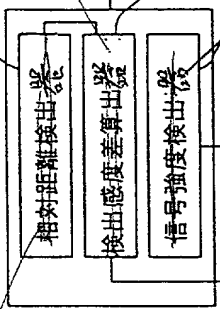 相対距離検出器
検出感度差算出器
信号強度検出器